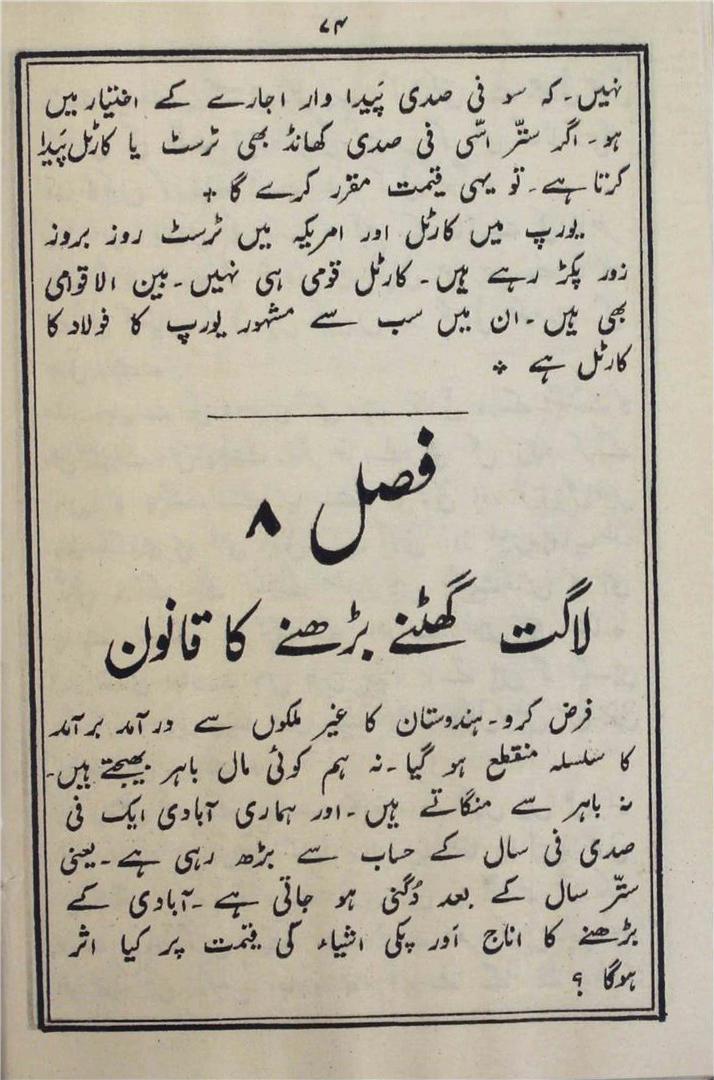 ۷۴
نہیں۔ کہ سو فی صدی پَیدا وار اجارے کے اختیار میں
ہو۔ اگر ستّر اسّی فی صدی کھانڈ بھی ٹرسٹ یا کارٹل پَیدا
کرتا ہے۔ تو یہی قیمت مقرر کرے گا ٭
یورپ میں کارٹل اور امریکہ میں ٹرسٹ روز بروز
زور پکڑ رہے ہیں۔ کارٹل قومی ہی نہیں۔ بین الاقوامی
بھی ہیں۔ ان میں سب سے مشہور یورپ کا فولاد کا
کارٹل ہے ٭
فصل ۸
لاگت گھٹنے بڑھنے کا قانون
فرض کرو۔ ہندوستان کا غیر ملکوں سے درآمد برآمد
کا سلسلہ منقطع ہو گیا۔ نہ ہم کوئی مال باہر بھیجتے ہیں۔
نہ باہر سے منگاتے ہیں۔ اور ہماری آبادی ایک فی
صدی فی سال کے حساب سے بڑھ رہی ہے۔ یعنی
ستّر سال کے بعد دُگنی ہو جاتی ہے۔ آبادی کے
بڑھنے کا اناج اَور پکی اشیاء کی قیمت پر کیا اثر
ہوگا ؟